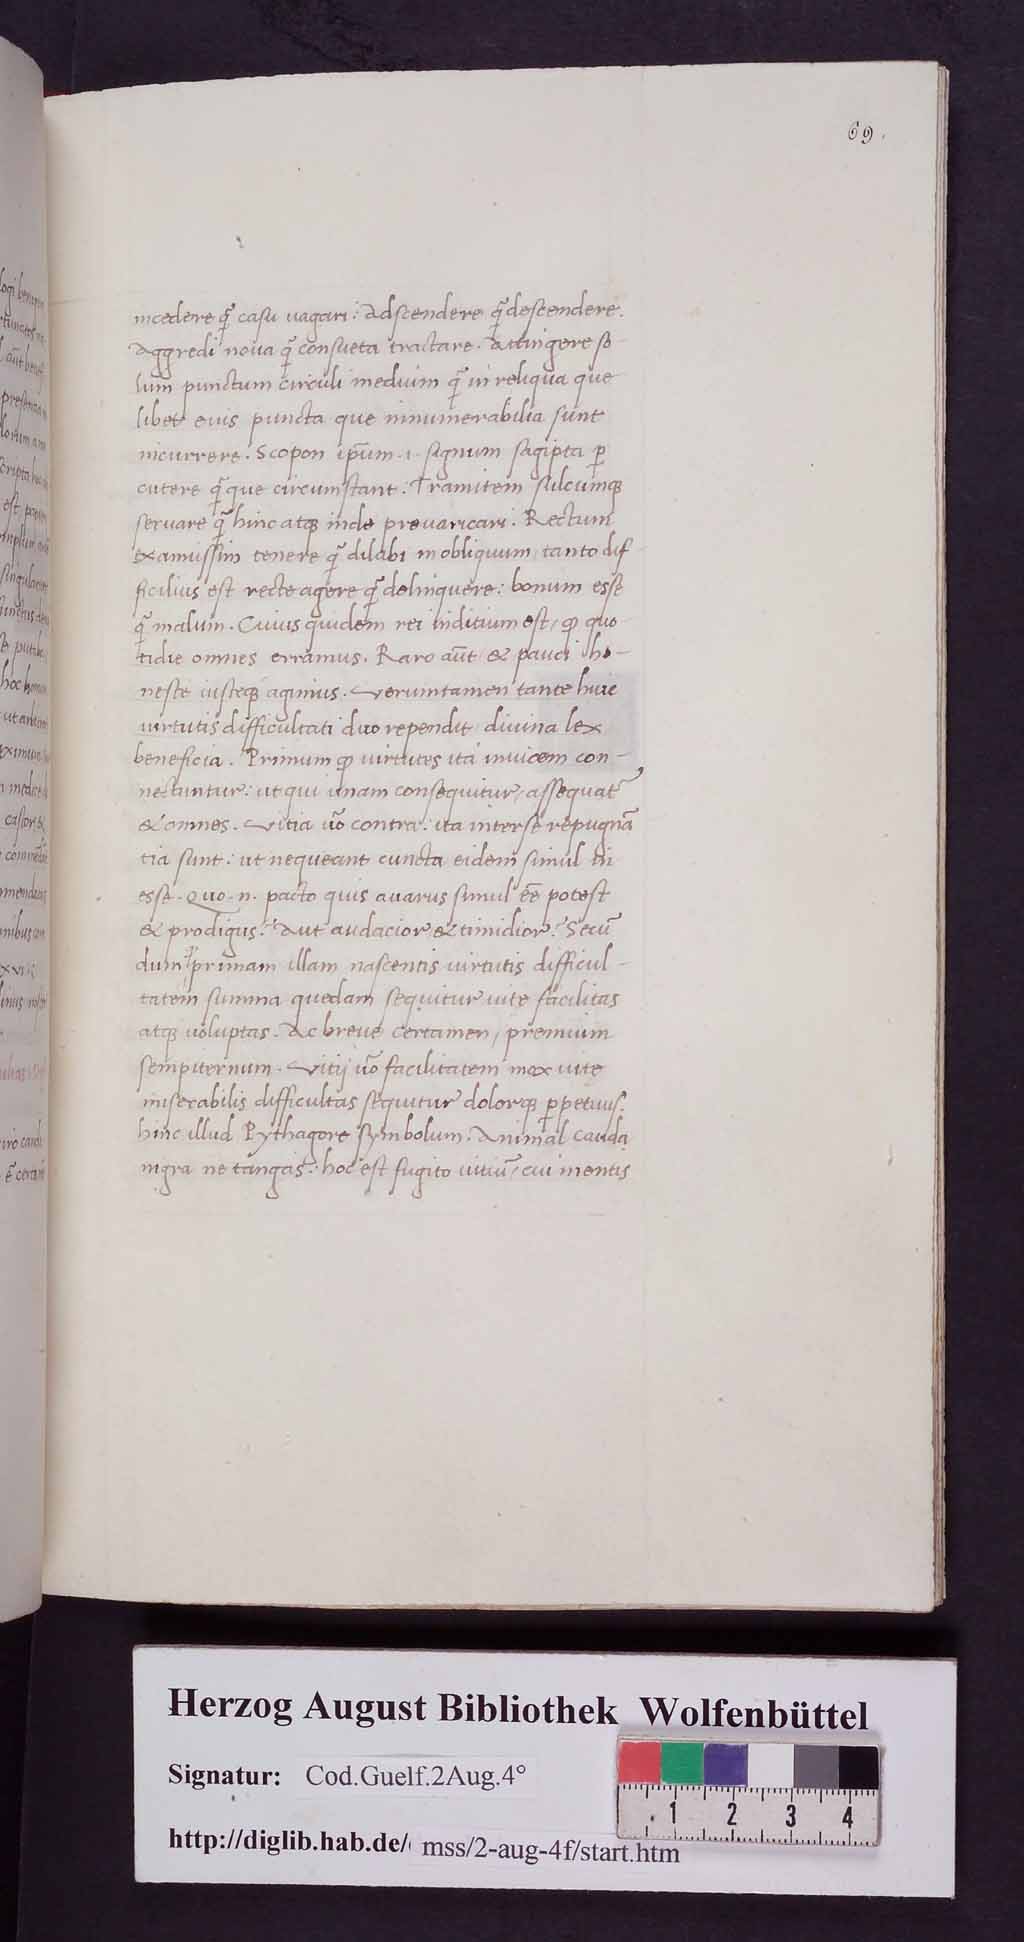 69.
incedere q̃ casu uagari: Adscendere q̃ descendere.
Aggredi noua q̃ consueta tractare. Attingere so
lum punctum circuli medium q̃ in reliqua que
libet eius puncta que innumerabilia sunt
incurrere. Scopon ip̄um .i. signum sagipta ꝑ
cutere q̃ que circumstant. Tramitem sulcumqꝫ
seruare q̃ hinc atqꝫ inde preuaricari. Rectum
examussim tenere q̃ dilabi in obliquum, tanto dif-
ficilius est recte agere q̃ delinquere: bonum esse
q̃ malum. Cuius quidem rei inditium est, ꝙ quo-
tidie omnes erramus. Raro aūt & pauci ho-
neste iusteqꝫ agimus. Verumtamen tante huic
uirtutis difficultati duo rependit diuina lex
beneficia. Primum ꝙ uirtutes ita inuicem con-
nectuntur: ut qui unam consequitur, assequat᷑
& omnes. Vitia uo᷑ contra: ita inter se repugnā
tia sunt: ut nequeant cuncta eidem simul in
esse. Quo .n. pacto quis auarus simul ēe potest
& prodigus? Aut audacior & timidior? Secū
dum primam illam nascentis uirtutis difficul-
tatem summa quedam sequitur uite facilitas
atqꝫ uoluptas. Ac breue certamen, premium
sempiternum. Vitij uo᷑ facilitatem mox uite
miserabilis difficultas sequitur dolorqꝫ ꝑpetuus.
hinc illud Pythagore symbolum. Animal cauda
nigra ne tangas: hoc est fugito uitiū, cui mentis
Herzog August Bibliothek Wolfenbüttel
Signatur: Cod.Guelf.2Aug.4°
http://diglib.hab.de/ mss/2-aug-4f/start.htm
1 2 3 4